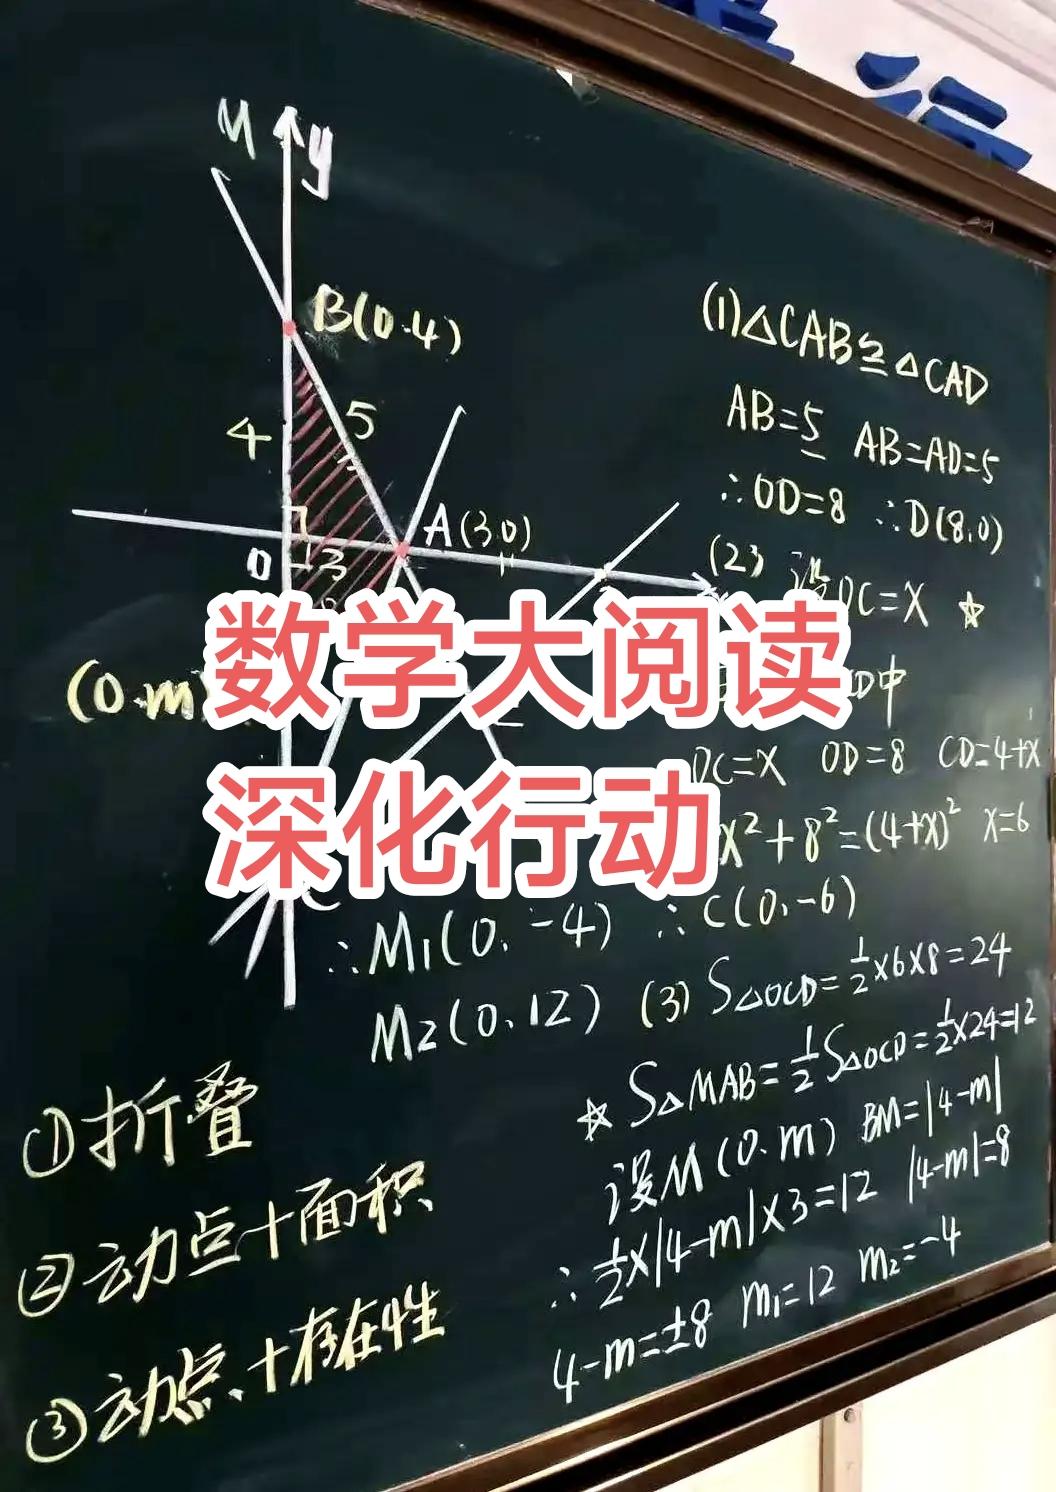 行
M
y
B(0.4)
4
5
0
3
A(3.0)
(0.m)
数学大阅读
深化行动
(1)△CAB≌△CAD
AB=5 AB=AD=5
∴OD=8 ∴D(8.0)
(2) 设OC=X ☆
D中
OC=X OD=8 CD=4+X
X²+8²=(4+X)² X=6
∴M1(0,-4) ∴C(0,-6)
M2(0,12) (3) S△OCD=½×6×8=24
☆ S△MAB=½S△OCD=½×24=12
设M(0.m) BM=|4-m|
∴½×|4-m|×3=12 |4-m|=8
4-m=±8 m₁=12 m₂=-4
①折叠
②动点+面积
③动点、+存在性